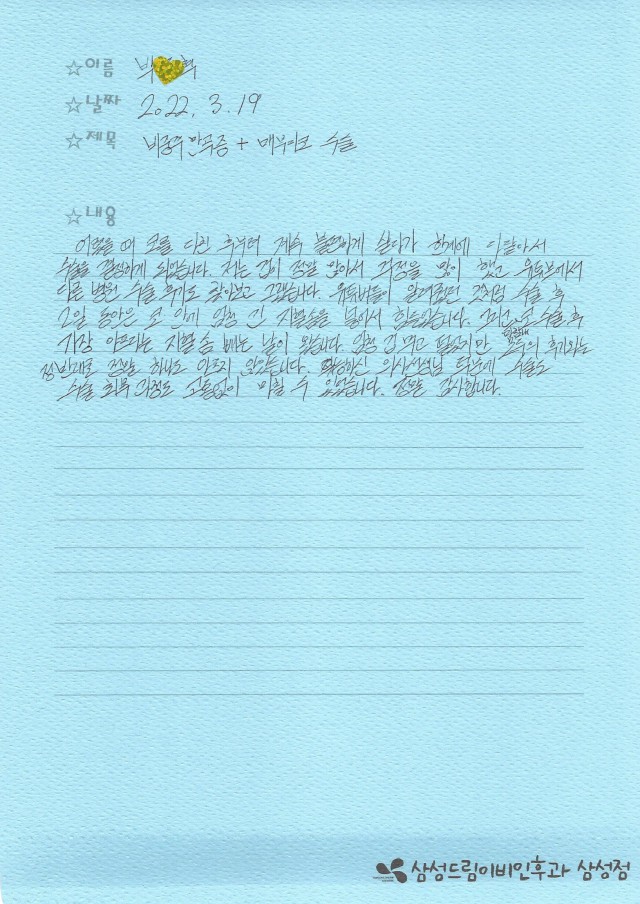 ☆이름 박 혁
☆날짜 2022. 3. 19
☆제목 비중주 만곡증 + 매부리코 수술
☆내용
어렸을 때 코를 다친 후부터 계속 불편하게 살다가 한계에 다달아서
수술을 결심하게 되었습니다. 저는 겁이 정말 많아서 걱정을 많이 했고 유튜브에서
다른 병원 수술 후기도 찾아보고 그랬습니다. 유튜버들이 알려줬던 것처럼 수술 후
2일 동안은 코 안에 엄청 긴 지혈솜을 넣어서 힘들었습니다. 그리고 코 수술 후
가장 아프다는 지혈 솜 빼는 날이 왔습니다. 엄청 겁 먹고 떨었지만 유튜브의 후기와는
정반대로 정말 하나도 아프지 않았습니다. 선생님 덕분에 수술도
수술 회복 과정도 고통없이 마칠 수 있었습니다. 정말 감사합니다.
삼성드림이비인후과 삼성점